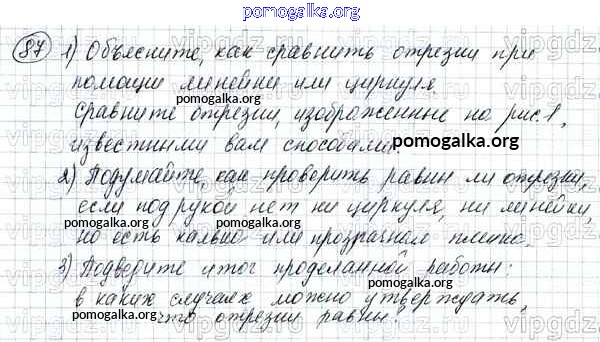 pomogalka.org
87 1) Объясните, как сравнить отрезки при
помощи линейки или циркуля.
pomogalka.org
сравните отрезки, изображенные на рис. 1,
pomogalka.org
известными вам способами.
pomogalka.org
2) Подумайте, как проверить равны ли отрезки,
если под рукой нет ни циркуля, ни линейки,
но есть калька или прозрачная пленка.
pomogalka.org
3) Подведите итог проделанной работы:
в каких случаях можно утверждать,
pomogalka.org
что отрезки равны?